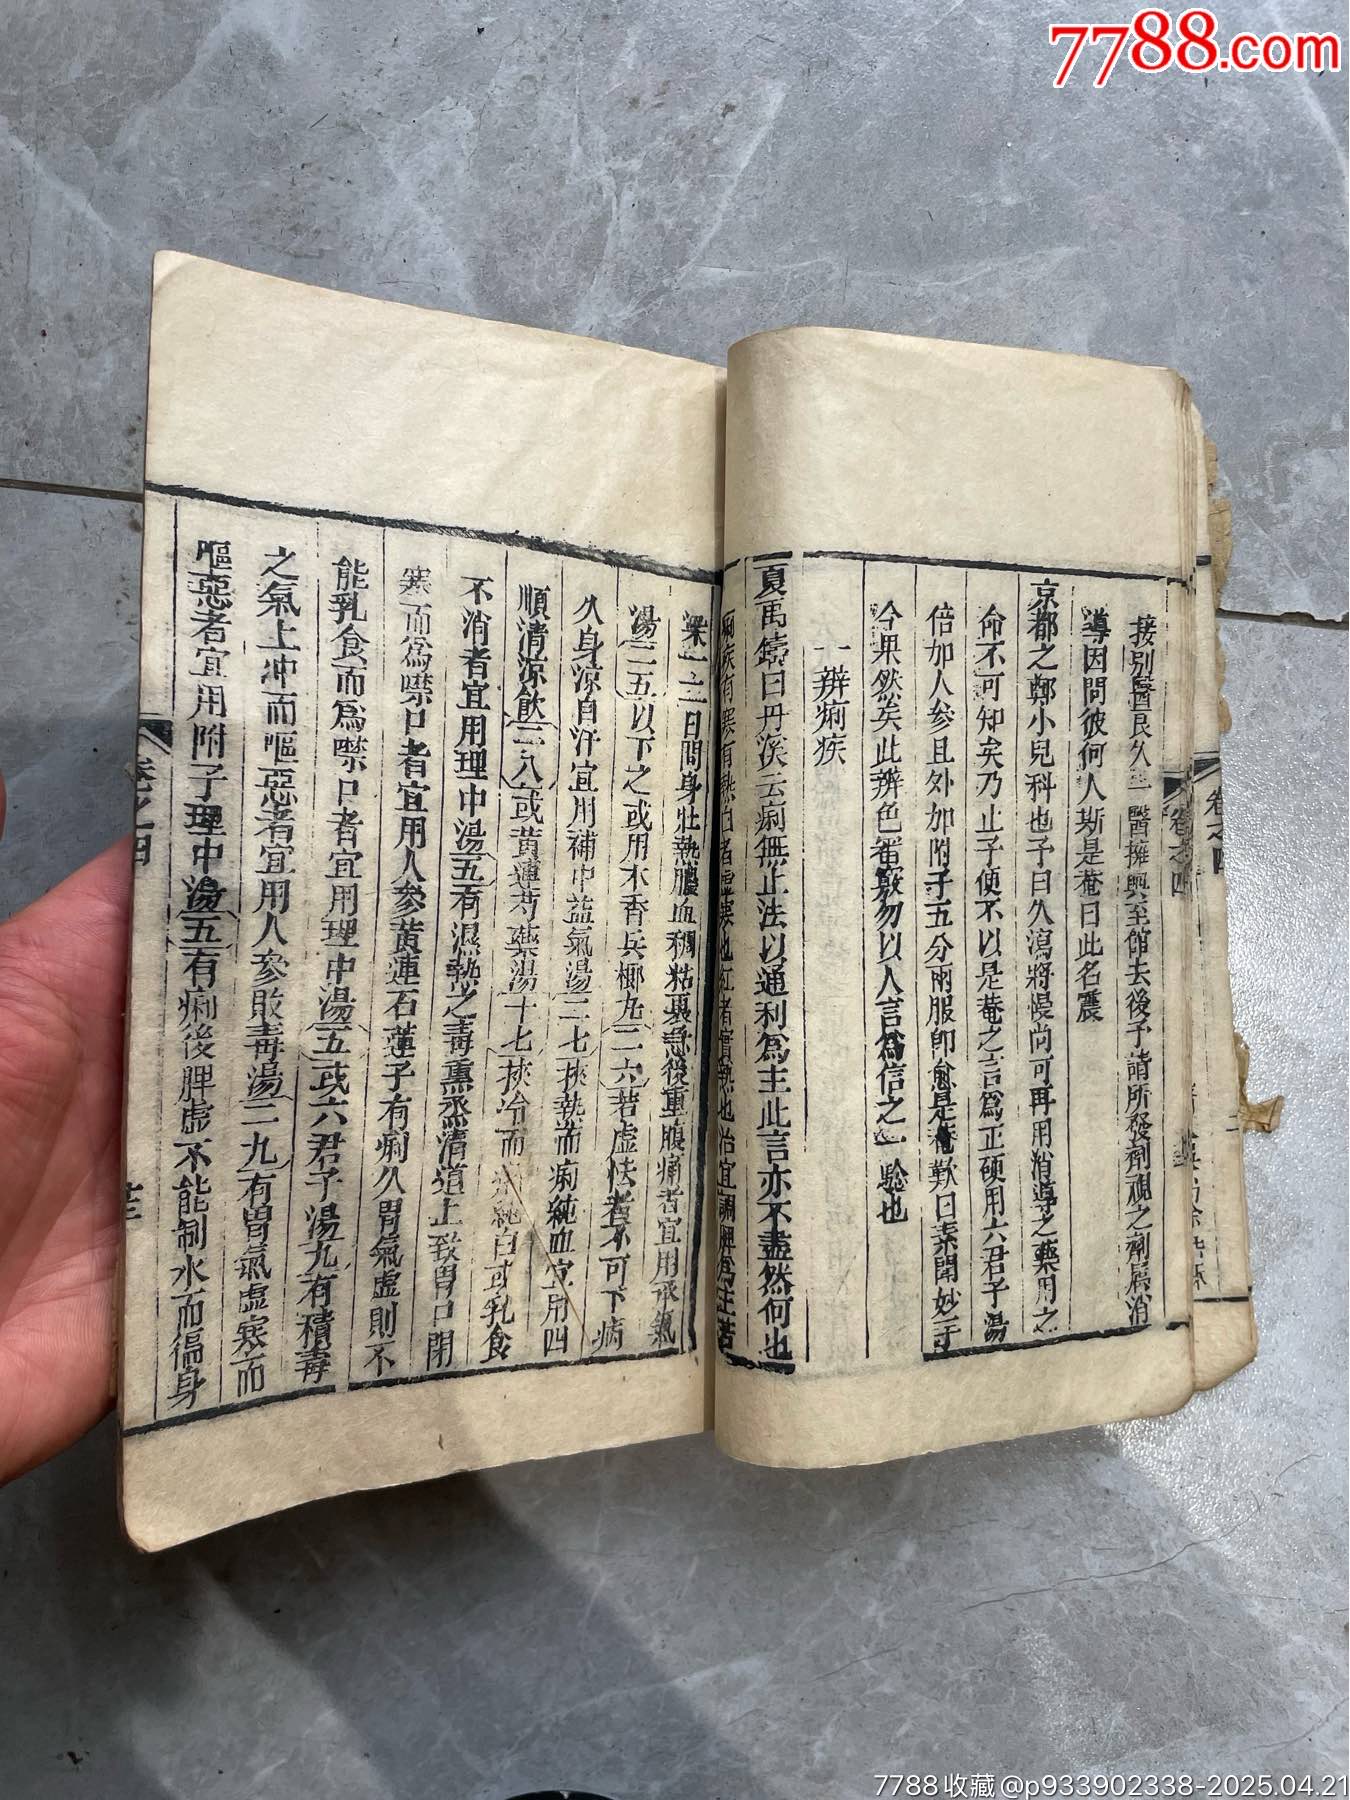 7788.com
接別醫良久一醫擁輿至館去後予請所發劑視之劑屬消
導因問彼何人斯是菴曰此名震
京都之鄭小兒科也予曰久瀉將慢尚可再用消導之藥用之
命不可知矣乃止予使不以是菴之言為正硬用六君子湯
倍加人參且外加附子五分兩服即愈是菴歎曰素聞妙手
今果然矣此辨色審竅勿以人言為信之一驗也
一辨痢疾
夏禹鑄曰丹溪云痢無止法以通利為主此言亦不盡然何也
痢疾有寒有熱白者虛寒也紅者實熱也治宜調脾為主若
染一二日間身壯熱膿血稠粘裏急後重腹痛者宜用承氣
湯二五以下之或用木香兵榔丸二六若虛怯者不可下病
久身涼自汗宜用補中益氣湯二七挾熱而痢純血宜用四
順清涼飲二八或黃連芍藥湯十七挾冷而痢純白或乳食
不消者宜用理中湯五有濕熱之毒熏蒸清道上致胃口閉
寒而為噤口者宜用人參黃連石蓮子有痢久胃氣虛則不
能乳食而為噤口者宜用理中湯五或六君子湯九有積毒
之氣上沖而嘔惡者宜用人參敗毒湯二九有胃氣虛寒而
嘔惡者宜用附子理中湯五有痢後脾虛不能制水而徧身
卷之四
卷之四
卷之四
7788收藏@p933902338-2025.04.21